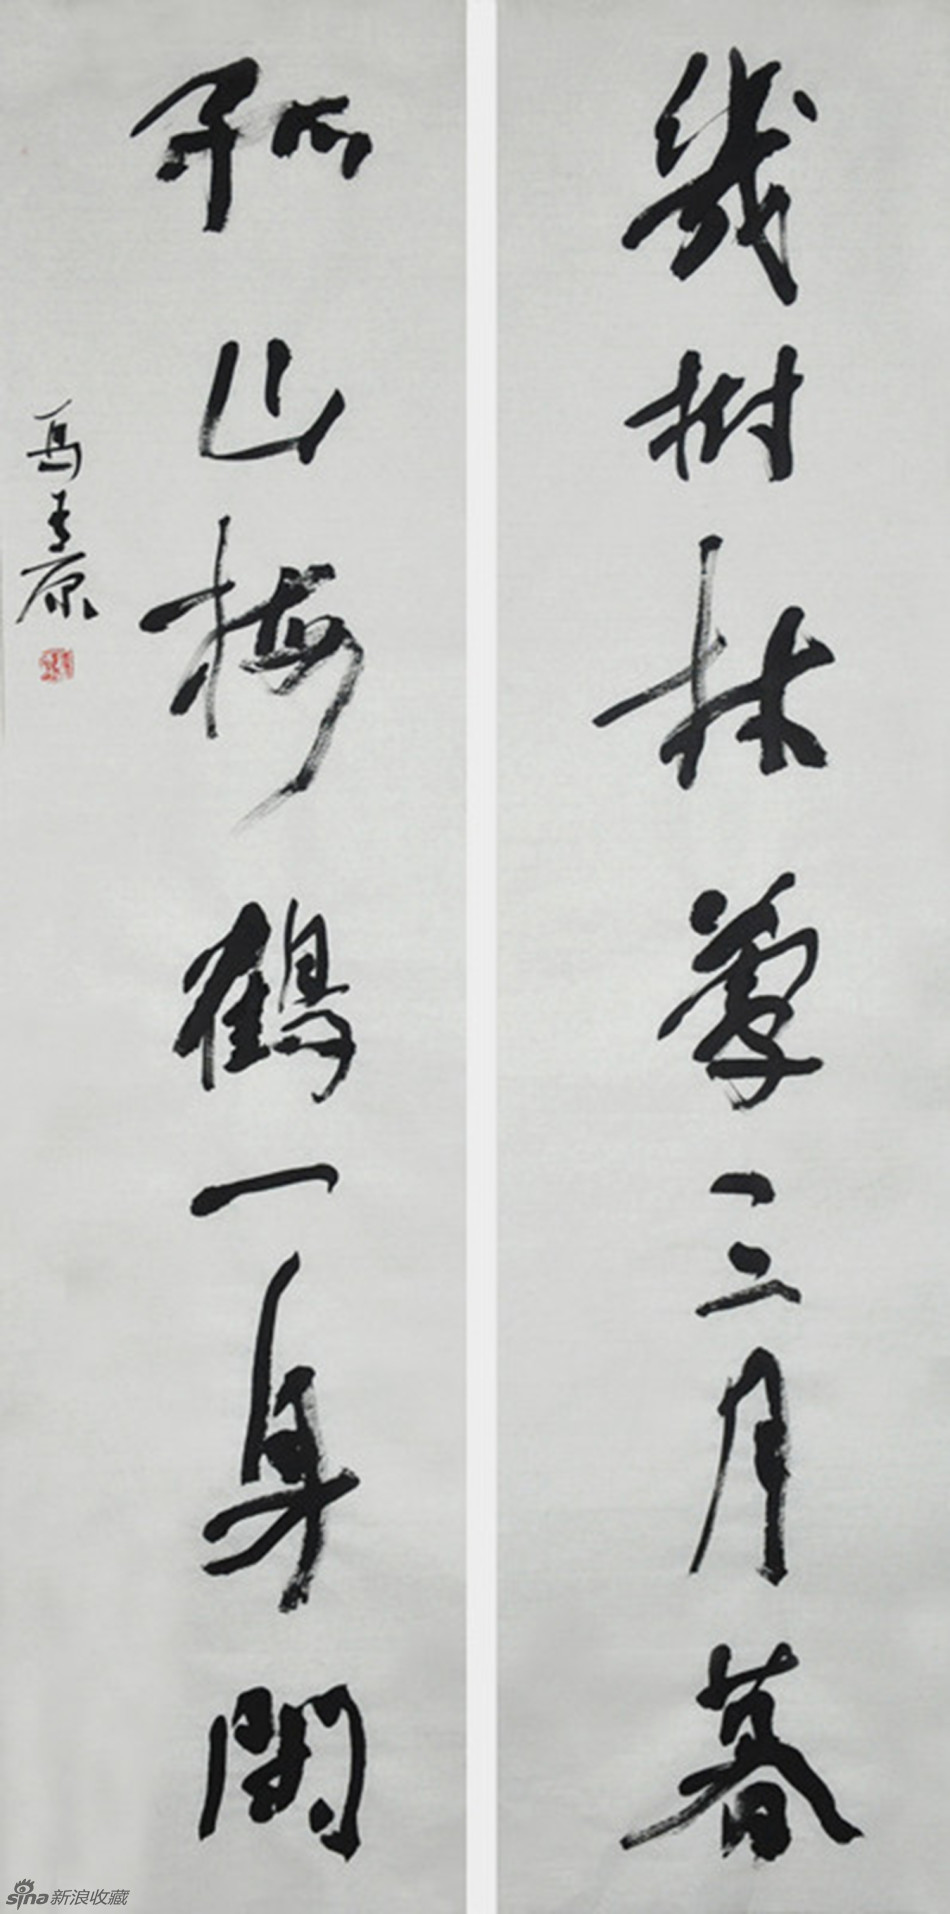 幾樹林鶯三月暮
孤山梅鶴一身閒
sina新浪收藏